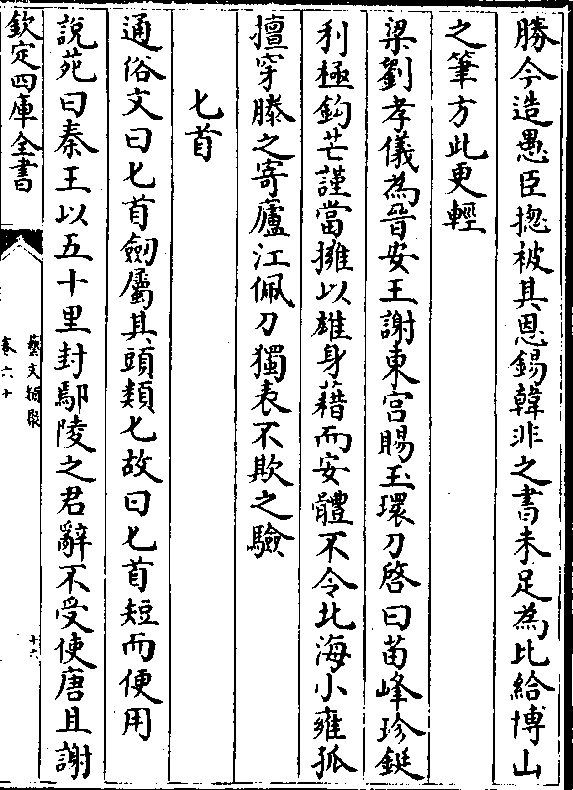 勝今造愚臣揔被其恩錫韓非之書未足為比給博山
之筆方此更輕
梁劉孝儀為晉安王謝東宮賜玉環刀啓曰苗峰珍鋌
利極鉤芒謹當擁以雄身藉而安體不令北海小雍孤
擅穿滕之寄廬江佩刀獨表不欺之驗
匕首
通俗文曰匕首劍屬其頭類匕故曰匕首短而便用
說苑曰秦王以五十里封鄢陵之君辭不受使唐且謝
欽定四庫全書
藝文類聚
卷六十
十六